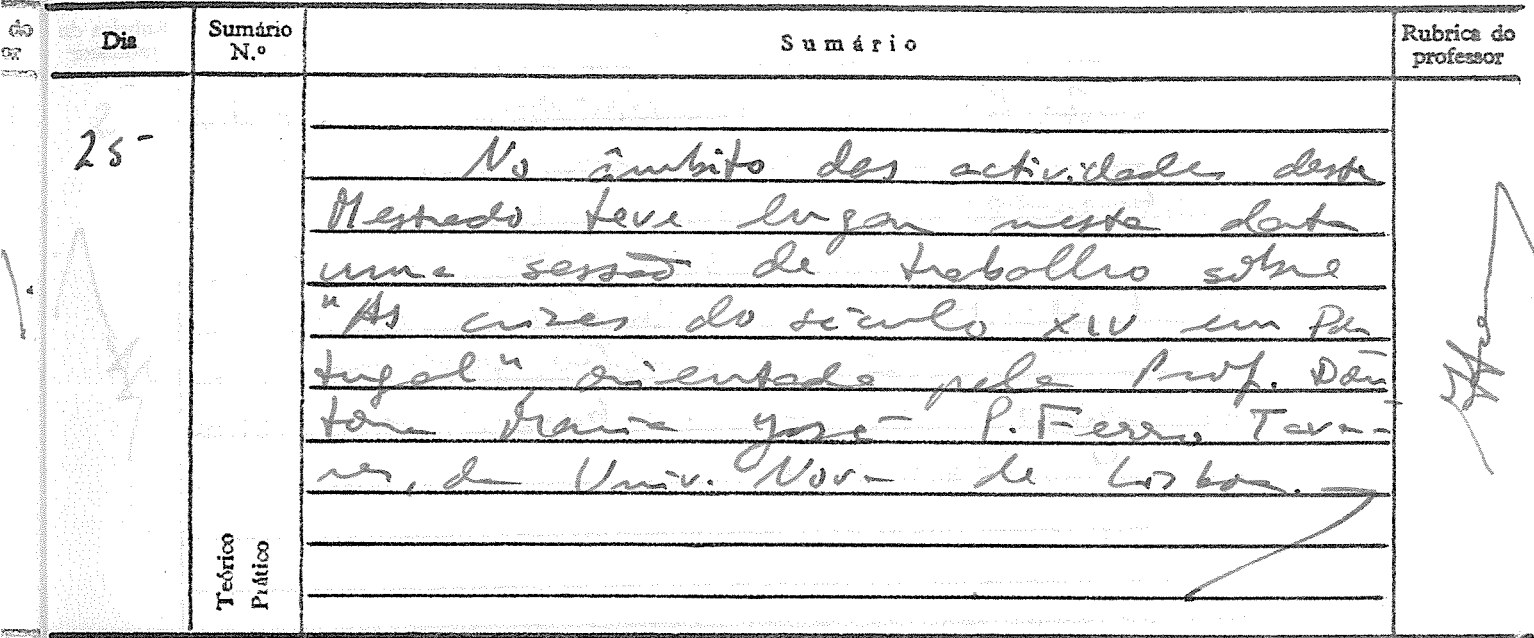 do
Dia
Sumário N.º
Sumário
Rubrica do professor
25-
No âmbito das actividades deste
Mestrado teve lugar nesta data
uma sessão de trabalho sobre
"As crises do século XIV em Por
tugal", orientada pela Prof. Dou
tora Maria José P. Ferro Tava-
res, da Univ. Nova de Lisboa.
Teórico
Prático